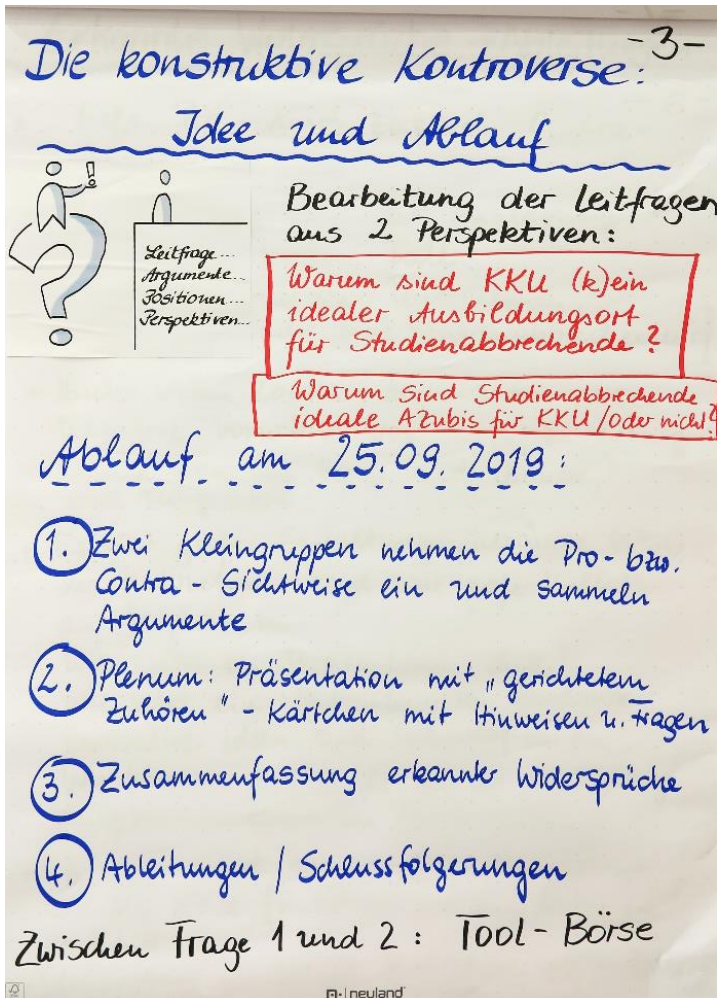 -3-
Die konstruktive Kontroverse:
Idee und Ablauf
Leitfrage...
Argumente...
Positionen...
Perspektiven...
Bearbeitung der Leitfragen
aus 2 Perspektiven:
Warum sind KKU (k)ein
idealer Ausbildungsort
für Studienabbrechende?
Warum sind Studienabbrechende
ideale Azubis für KKU/oder nicht?
Ablauf am 25.09.2019:
1. Zwei Kleingruppen nehmen die Pro- bzw.
Contra-Sichtweise ein und sammeln
Argumente
2. Plenum: Präsentation mit „gerichtetem
Zuhören" - Kärtchen mit Hinweisen u. Fragen
3. Zusammenfassung erkannter Widersprüche
4. Ableitungen / Schlussfolgerungen
Zwischen Frage 1 und 2: Tool-Börse
neuland